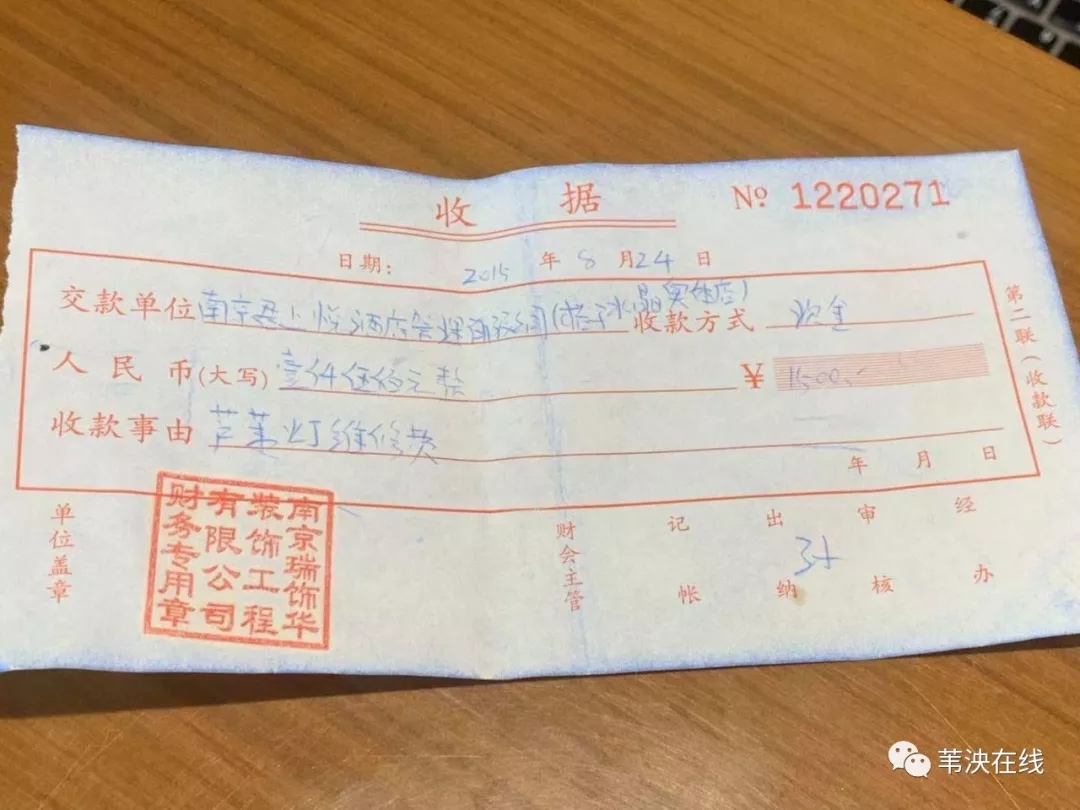 收据
№ 1220271
日期: 2015 年 8 月 24 日
交款单位 南京 酒店 收款方式 现金
人民币(大写) 壹仟伍佰元整 ¥ 1500.-
收款事由 芦苇灯维修费
年 月 日
第二联(收款联)
单位盖章
南京瑞饰华
装饰工程
有限公司
财务专用章
财会主管
记帐
出纳
审核
经办
苇泱在线